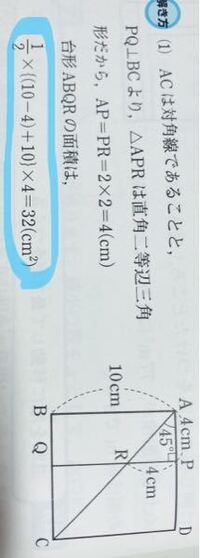 解き方 (1) ACは対角線であることと,
PQ⊥BCより, △APRは直角二等辺三角
形だから, AP=PR=2×2=4(cm)
台形ABQRの面積は,
1/2×{(10-4)+10}×4=32(cm²)
A 4cm P D
45°
4cm
R
10cm
B Q C